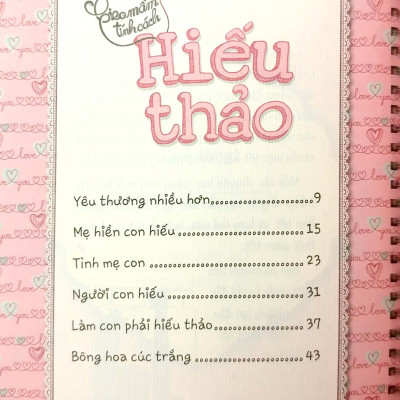 Gieo mầm
tính cách
Hiếu
thảo
Yêu thương nhiều hơn........................9
Mẹ hiền con hiếu........................15
Tình mẹ con........................23
Người con hiếu........................31
Làm con phải hiếu thảo........................37
Bông hoa cúc trắng........................43